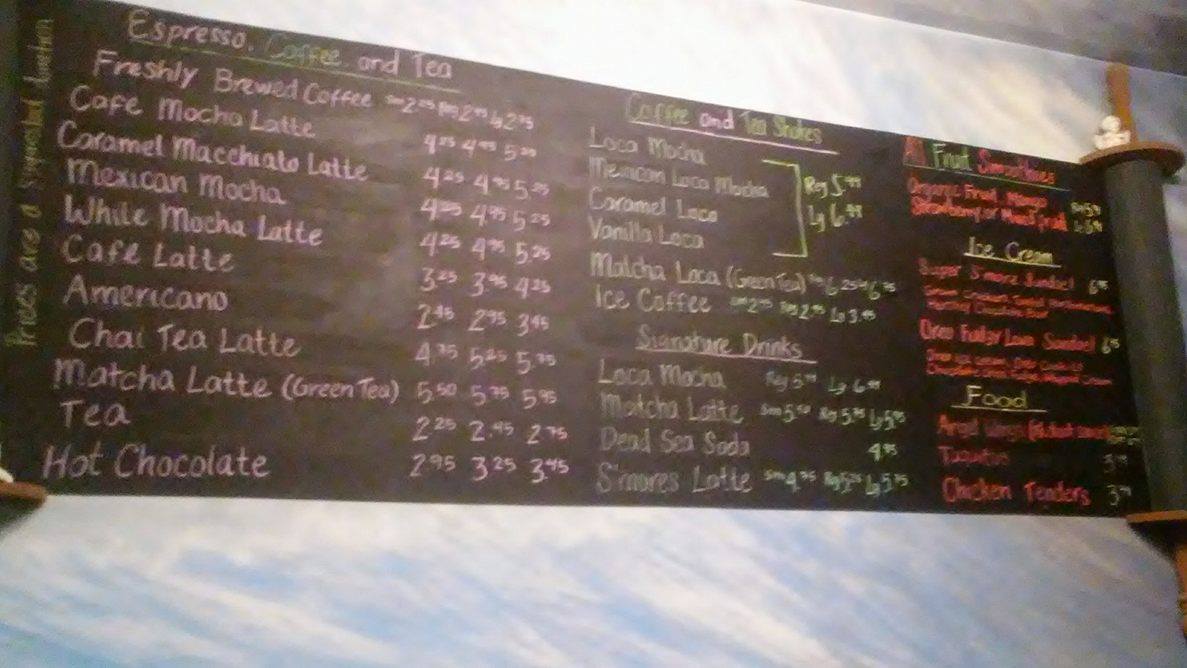 Prices are a Suggested Donation
Espresso, Coffee and Tea
Freshly Brewed Coffee sm 2.25 Reg 2.45 Lg 2.75
Cafe Mocha Latte 4.25 4.95 5.25
Caramel Macchiato Latte 4.25 4.95 5.25
Mexican Mocha 4.25 4.95 5.25
White Mocha Latte 4.25 4.95 5.25
Café Latte 3.25 3.95 4.25
Americano 2.45 2.95 3.45
Chai Tea Latte 4.75 5.25 5.75
Matcha Latte (Green Tea) 5.50 5.75 5.95
Tea 2.25 2.45 2.75
Hot Chocolate 2.95 3.25 3.45
Coffee and Tea Shakes
Loca Mocha
Mexican Loca Mocha
Caramel Loca
Vanilla Loca
Reg 5.99
Lg 6.49
Matcha Loca (Green Tea) 6.25 6.75
Ice Coffee sm 2.45 Reg 2.95 Lg 3.45
Signature Drinks
Loca Mocha Reg 5.99 Lg 6.49
Matcha Latte sm 5.50 Reg 5.75 Lg 5.95
Dead Sea Soda 4.95
S'mores Latte sm 4.75 Reg 5.25 Lg 5.75
All Fruit Smoothies
Organic Fruit Mango
Strawberry or
Ice Cream
Super S'morz Sundae! 6.95
Oreo Fudgy Love Sundae! 6.95
Food
Angel Wings
Taquitos
Chicken Tenders